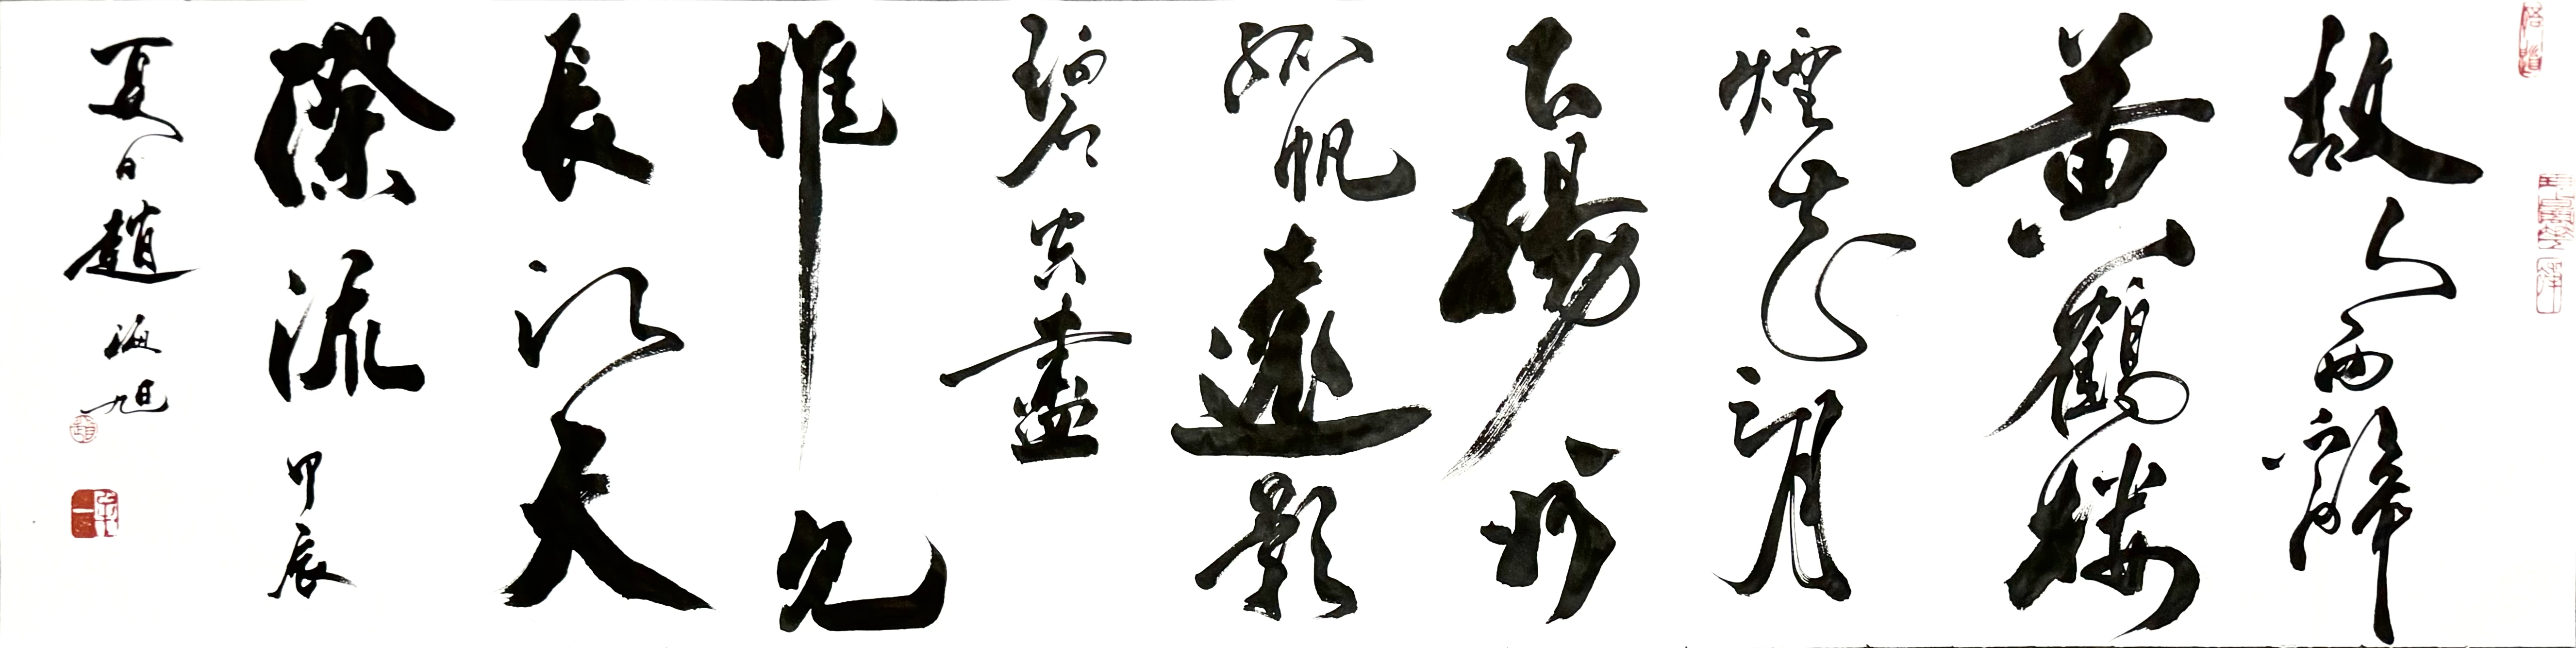 故人西辭
黄鶴樓
煙花三月
下揚州
孤帆遠影
碧空盡
惟見
長江天
際流 甲辰
夏日趙海旭